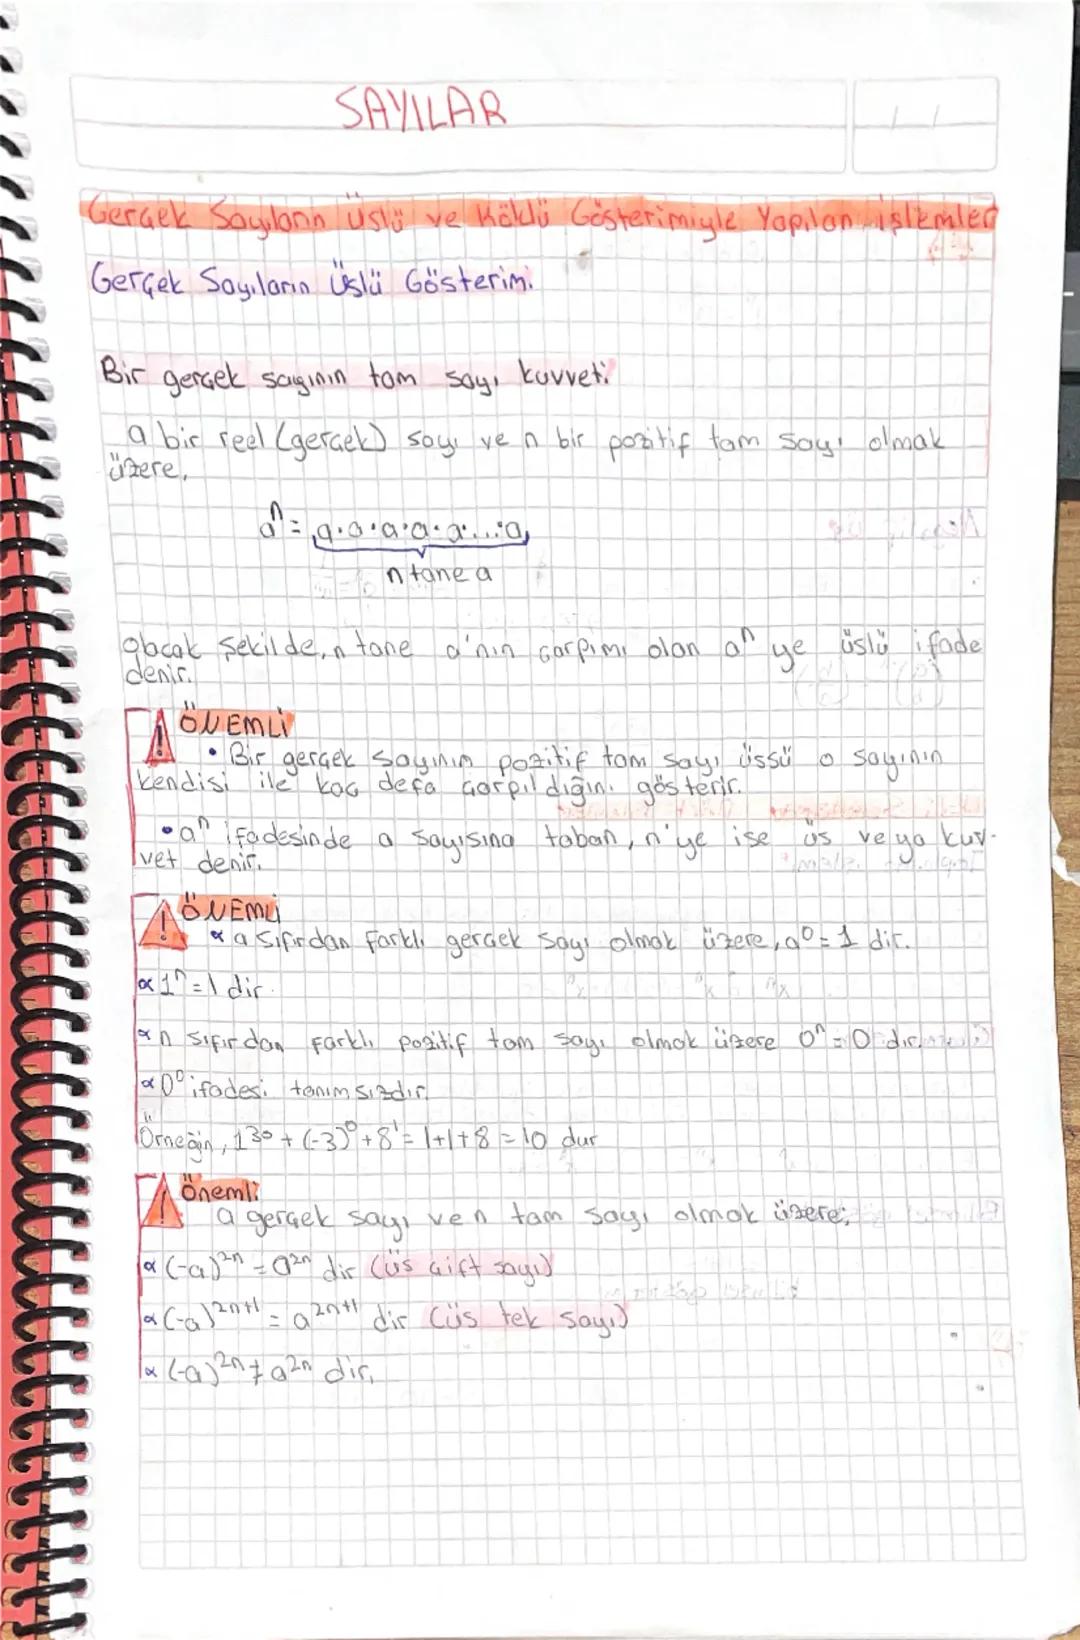 SAYILAR
Gerçek Sayıların Üslü ve Köklü Gösterimiyle Yapılan İşlemler
Gerçek Sayıların Üslü Gösterimi
Bir gerçek sayının tam sayı kuvveti
a bir reel (gerçek) sayı ve n bir pozitif tam sayı olmak
üzere,
aⁿ = a·a·a·a·a·...·a
n tane a
olacak şekilde, n tane a'nın çarpımı olan aⁿ ye üslü ifade
denir.
ÖNEMLİ
• Bir gerçek sayının pozitif tam sayı üssü o sayının
kendisi ile kaç defa çarpıldığını gösterir.
• aⁿ ifadesinde a sayısına taban, n'ye ise üs veya kuv-
vet denir.
ÖNEMLİ
∝ a sıfırdan farklı gerçek sayı olmak üzere, a⁰ = 1 dir.
∝ 1ⁿ = 1 dir.
∝ n sıfırdan farklı pozitif tam sayı olmak üzere 0ⁿ = 0 dır.
∝ 0⁰ ifadesi tanımsızdır.
Örneğin, 1³⁰ + (-3)⁰ + 8¹ = 1+1+8 = 10 dur
Önemli
a gerçek sayı ve n tam sayı olmak üzere;
∝ (-a)²ⁿ = a²ⁿ dir (üs çift sayı)
∝ (-a)²ⁿ⁺¹ = a²ⁿ⁺¹ dir (üs tek sayı)
∝ (-a)²ⁿ ≠ a²ⁿ dir.